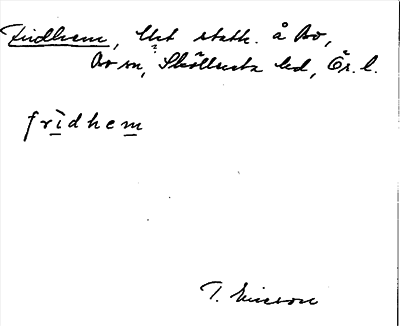 Fridhem, lht statk. å Bo,
Bo sn, Sköllersta hd, Ör. l.
frìdhem
T. Ericson